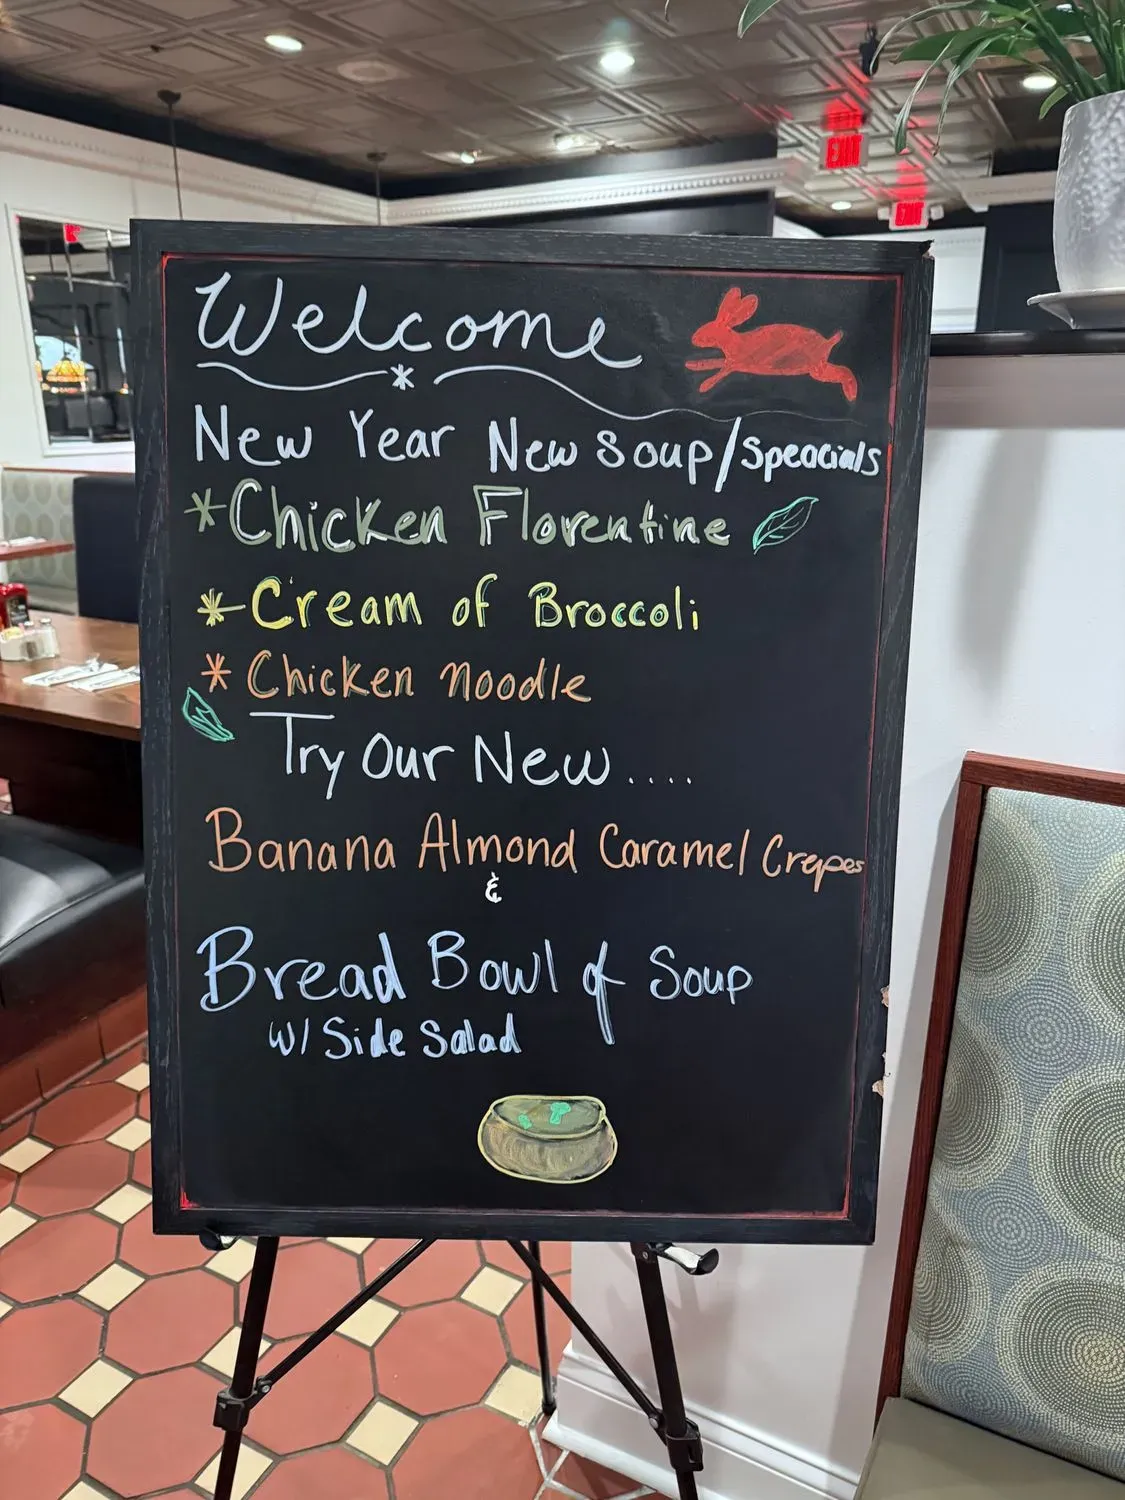 Welcome
New Year New Soup/Speacials
*Chicken Florentine
*Cream of Broccoli
*Chicken Noodle
Try Our New....
Banana Almond Caramel Crepes
&
Bread Bowl of Soup
w/ Side Salad
EXIT
EXIT